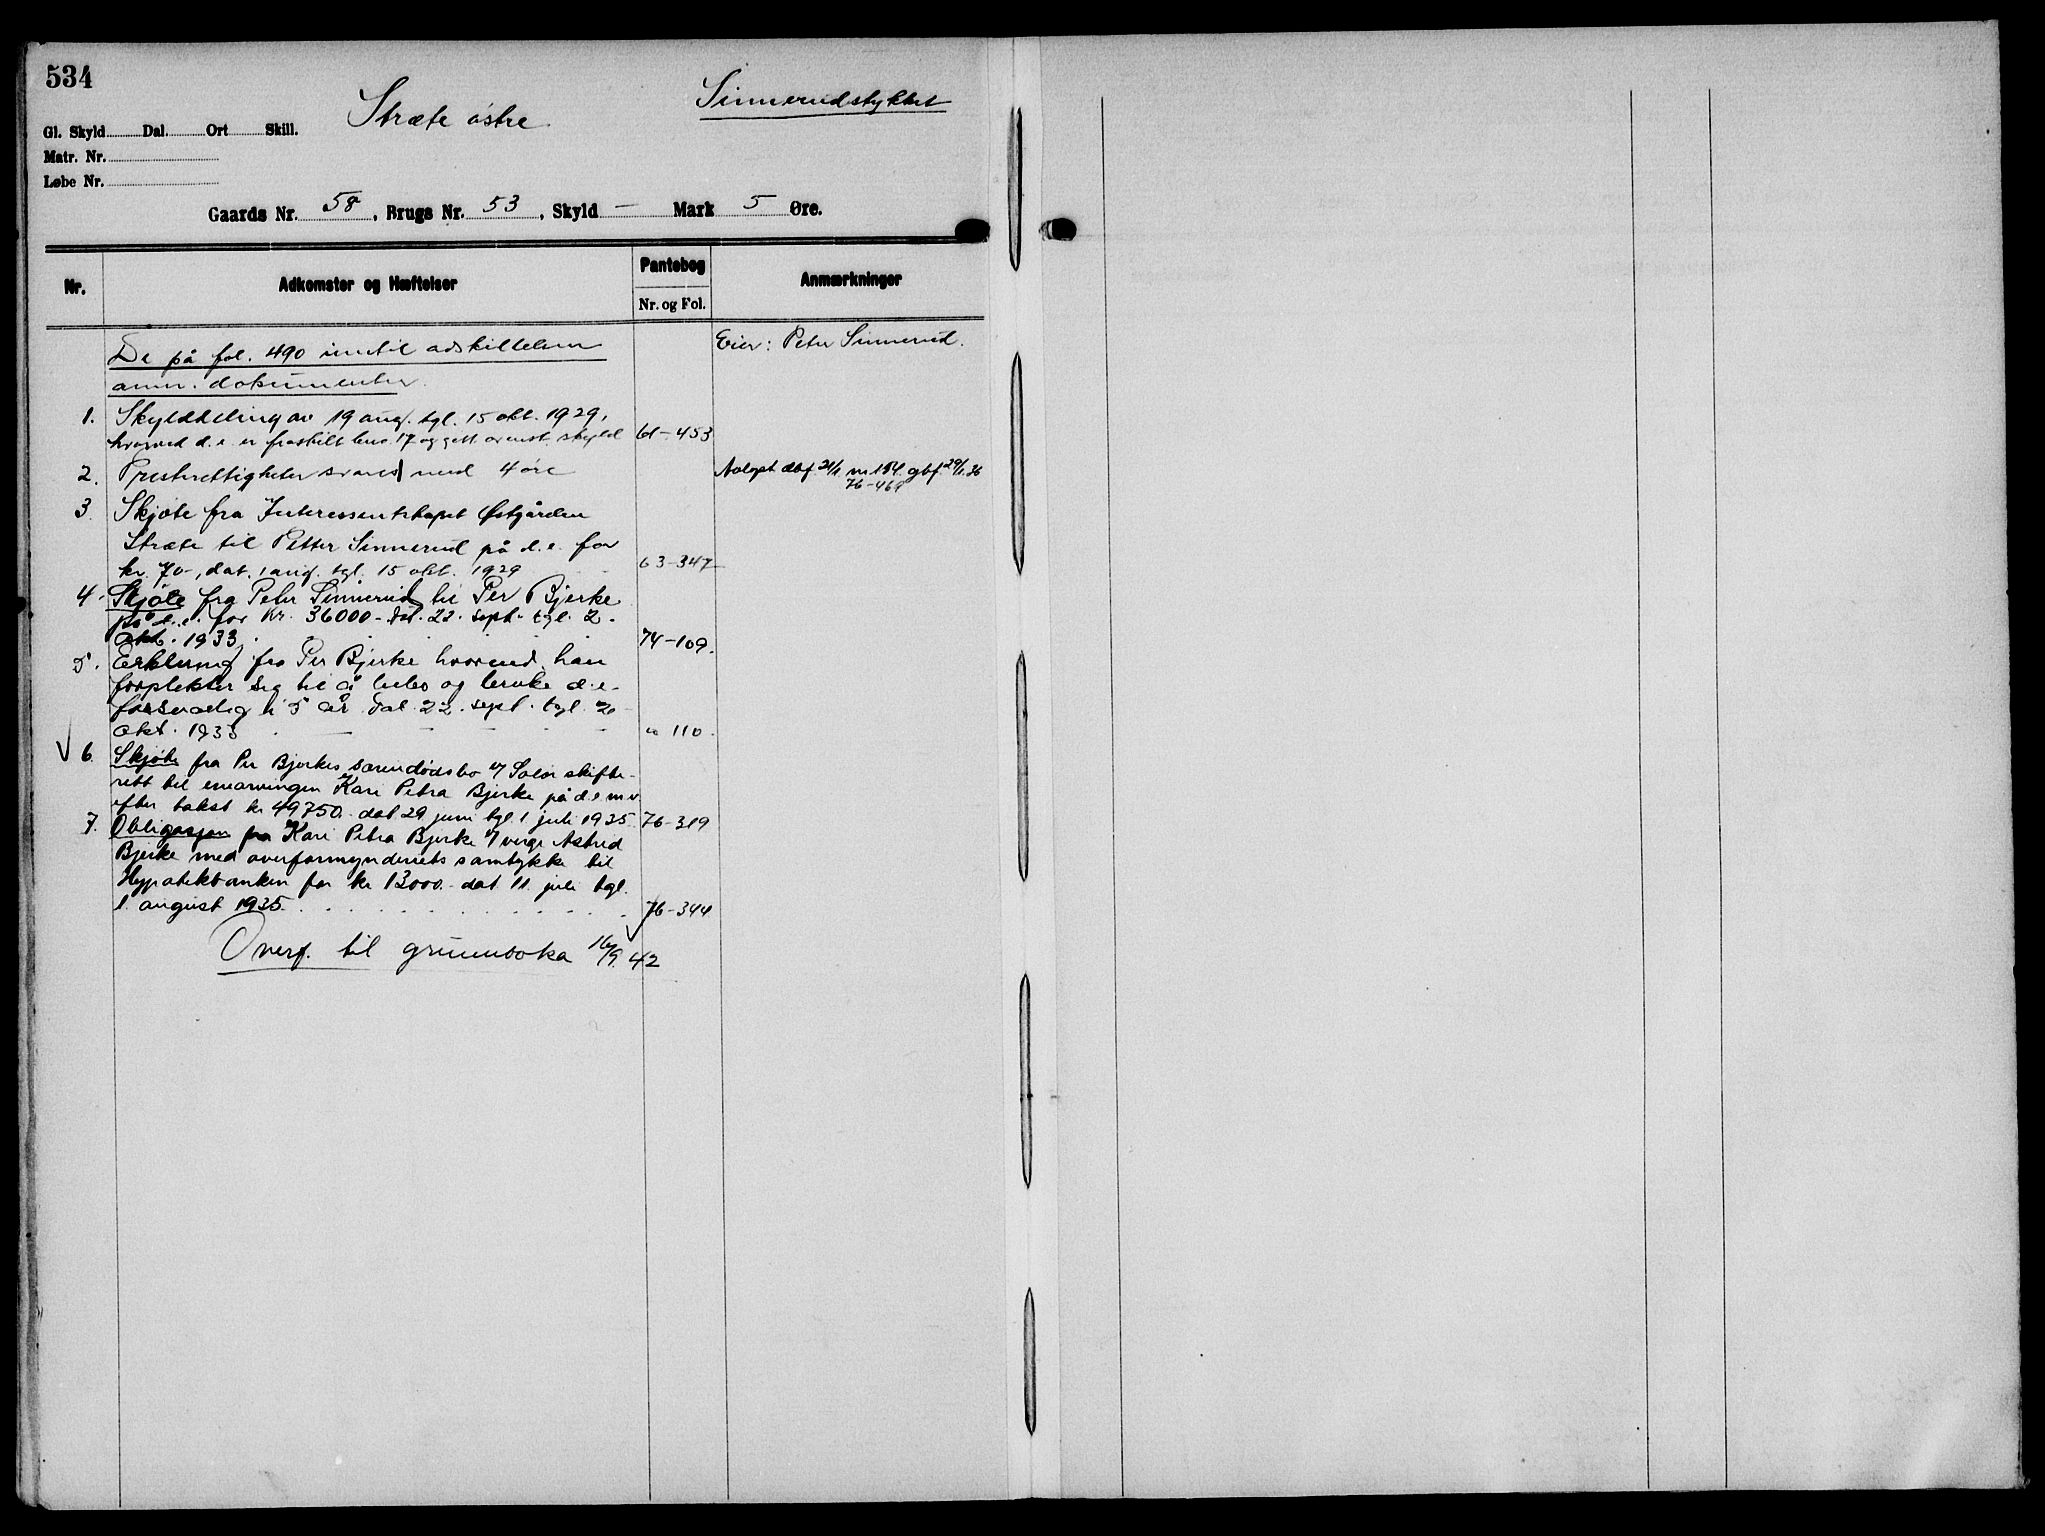 534
Stræte østre
Sinnerudstykket
Gl. Skyld Dal. Ort Skill.
Matr. Nr.
Løbe Nr.
Gaards Nr. 58, Brugs Nr. 53, Skyld — Mark 5 Øre.
Nr. Adkomster og Hæftelser Pantebog Anmærkninger
Nr. og Fol.
De på fol. 490 inntil adskillelsen
anm. dokumenter.
Eier: Peter Sinnerud.
1. Skylddeling av 19 aug. tgl. 15 okt. 1929,
hvorved d.e. er fraskilt bno. 17 og gitt ovenst. skyld 61-453
2. Presterettigheter svares med 4 øre
Avløst dbf 21/1 nr 154. gbf 29/1.36
76-469
3. Skjøte fra Interessentskapet Østgården
Stræte til Petter Sinnerud på d.e. for
kr. 70-, dat. 1 aug. tgl. 15 okt. 1929 63-347
4. Skjøte fra Peter Sinnerud til Per Bjerke
på d.e. for Kr. 36000- dat. 22. sept. tgl. 2.
okt. 1933. 74-109.
5. Erklæring fra Per Bjerke hvorved han
forplikter sig til å bebo og bruke d.e.
forsvarlig i 5 år. Dat. 22. sept. tgl. 2
okt. 1933 " 110.
6. Skjøte fra Per Bjerkes særendødsbo v/ Solør skifte-
rett til enearvingen Kari Petra Bjerke på d.e. m.v.
efter takst kr 49750.- dat 29 juni tgl. 1 juli 1935 76-319
7. Obligasjon fra Kari Petra Bjerke v/ verge Astrid
Bjerke med overformynderiets samtykke til
Hypotekbanken for kr 13000.- dat 11. juli tgl.
1. august 1935. 76-344
Overf. til grunnboka 16/9. 42